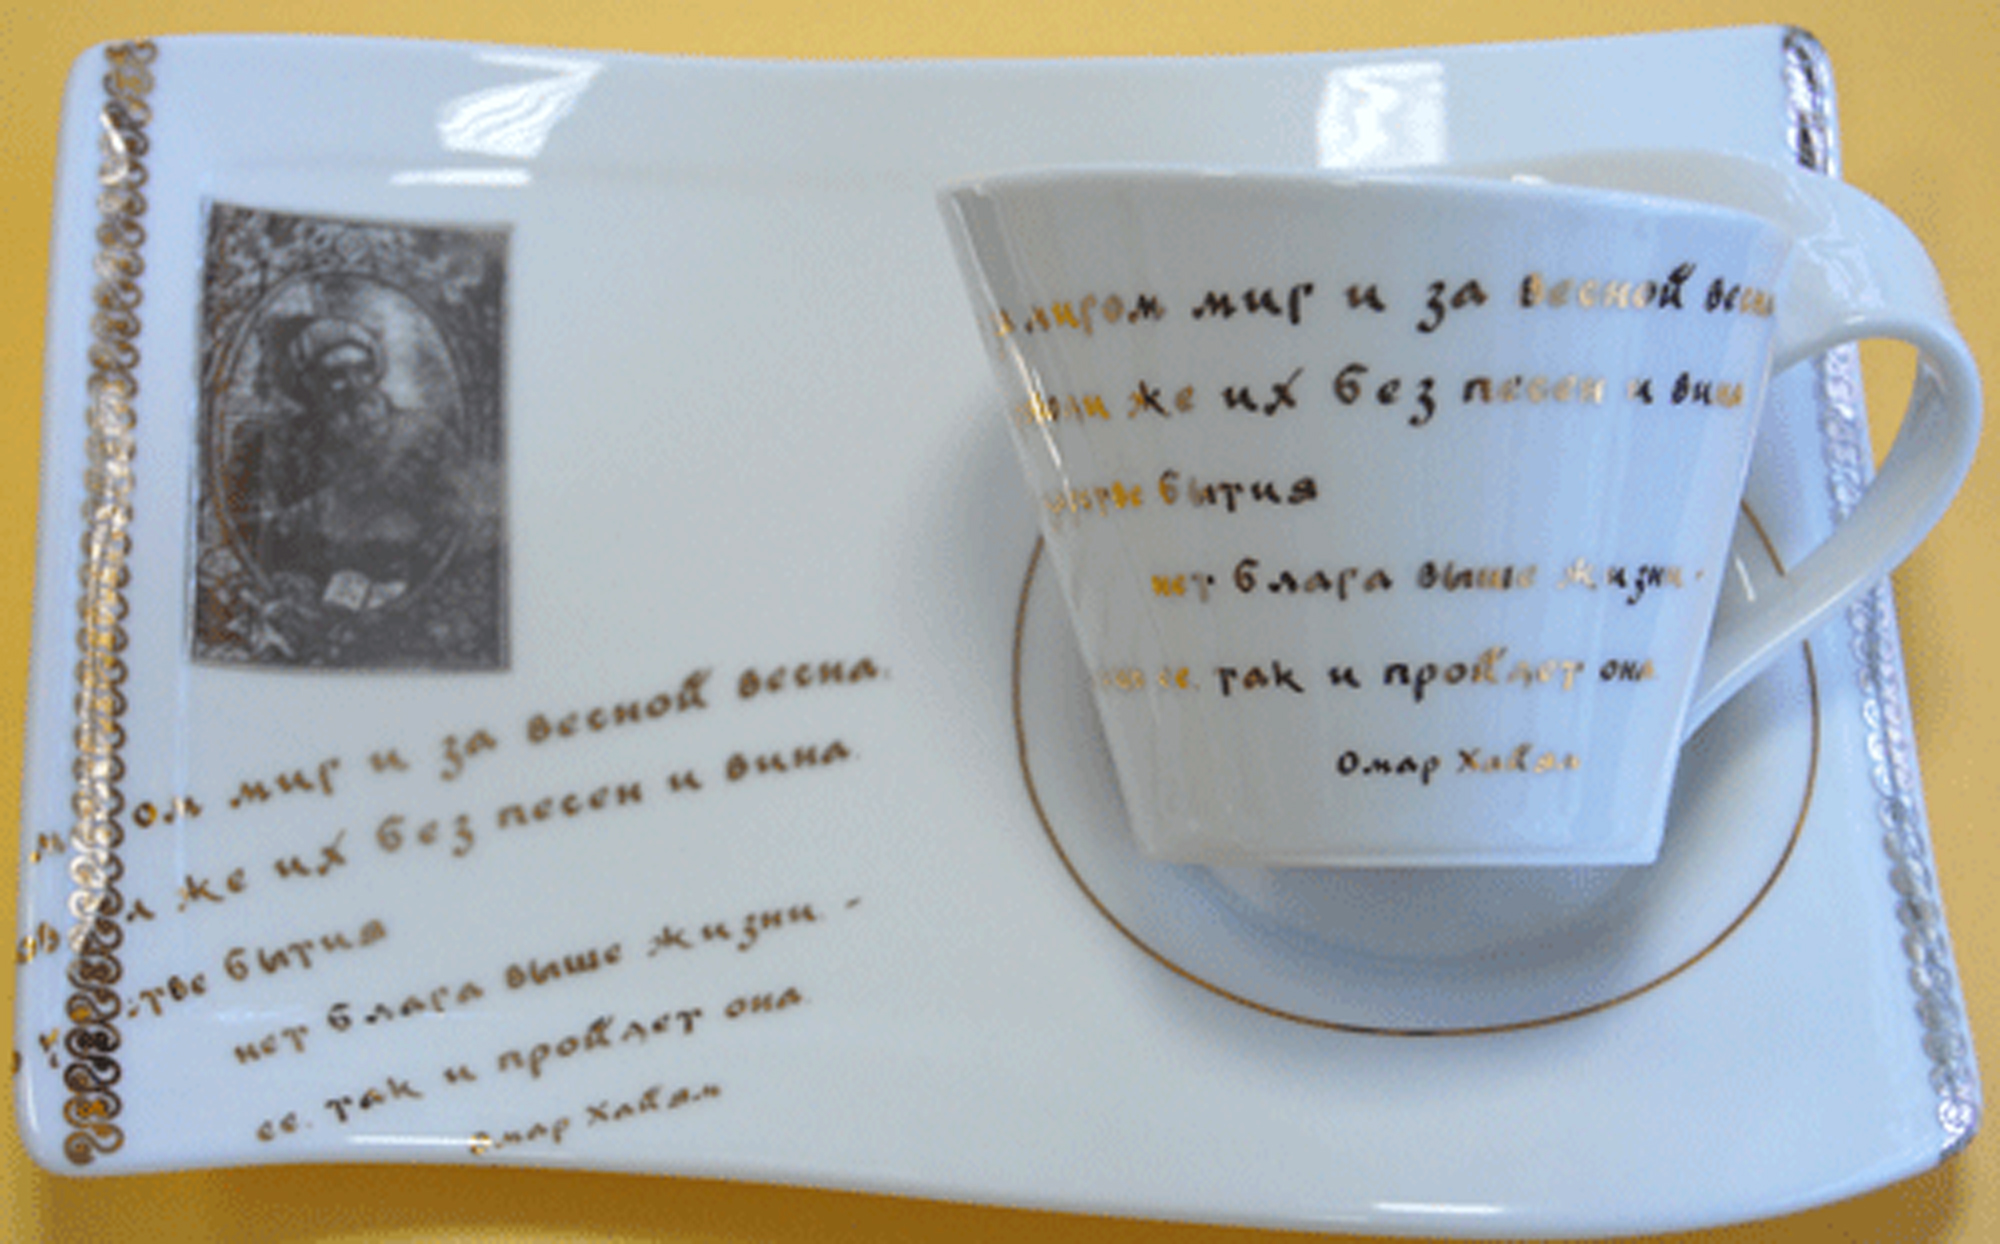 мир и за весной весна.
же их без песен и вина.
бытия
нет блага выше жизни. -
ее. так и пройдет она.
Омар Хайям
мир и за весной
же их без песен и вина
бытия
нет блага выше жизни -
ее. так и пройдет она
Омар Хайям